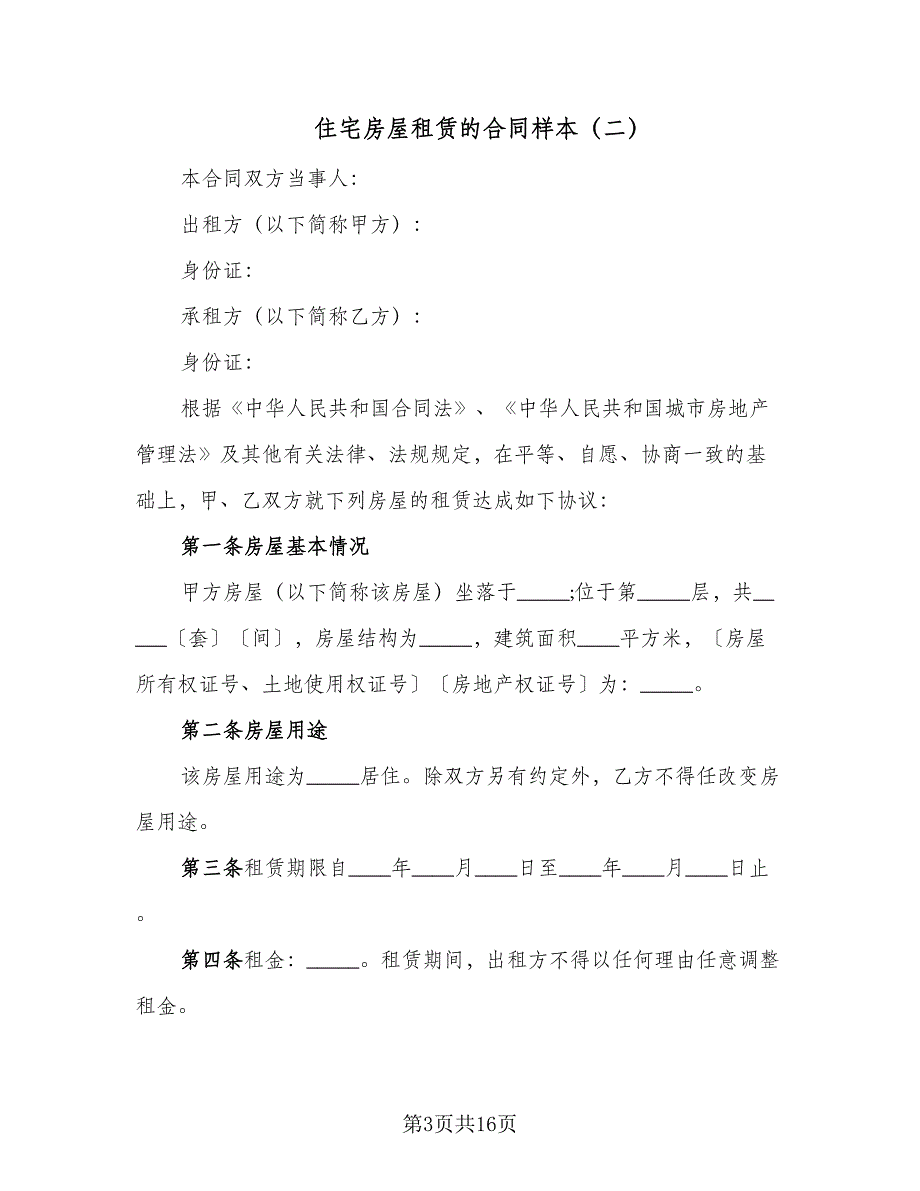 住宅房屋租赁的合同样本（二）
本合同双方当事人：
出租方（以下简称甲方）：
身份证：
承租方（以下简称乙方）：
身份证：
根据《中华人民共和国合同法》、《中华人民共和国城市房地产
管理法》及其他有关法律、法规规定，在平等、自愿、协商一致的基
础上，甲、乙双方就下列房屋的租赁达成如下协议：
第一条房屋基本情况
甲方房屋（以下简称该房屋）坐落于_____;位于第_____层，共__
___〔套〕〔间〕，房屋结构为_____，建筑面积____平方米，〔房屋
所有权证号、土地使用权证号〕〔房地产权证号〕为：_____。
第二条房屋用途
该房屋用途为_____居住。除双方另有约定外，乙方不得任改变房
屋用途。
第三条租赁期限自____年____月____日至____年____月____日止
。
第四条租金：_____。租赁期间，出租方不得以任何理由任意调整
租金。
第3页共16页